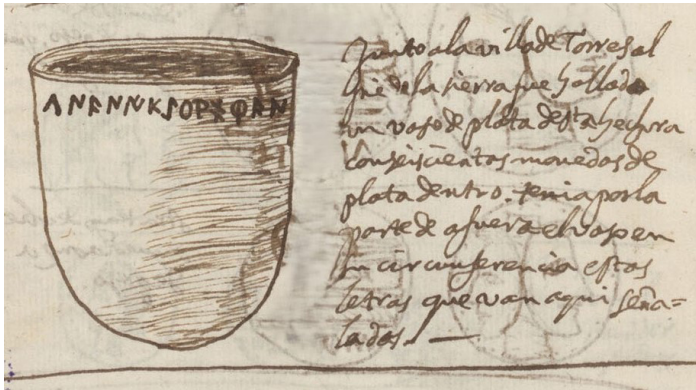 Junto a la villa de Torres al
pie de la sierra fue hallado
un vaso de plata desta hechura
con seiscientas monedas de
plata dentro. tenia por la
parte de afuera el vaso en
su circunferencia estas
letras que van aqui seña=
ladas.